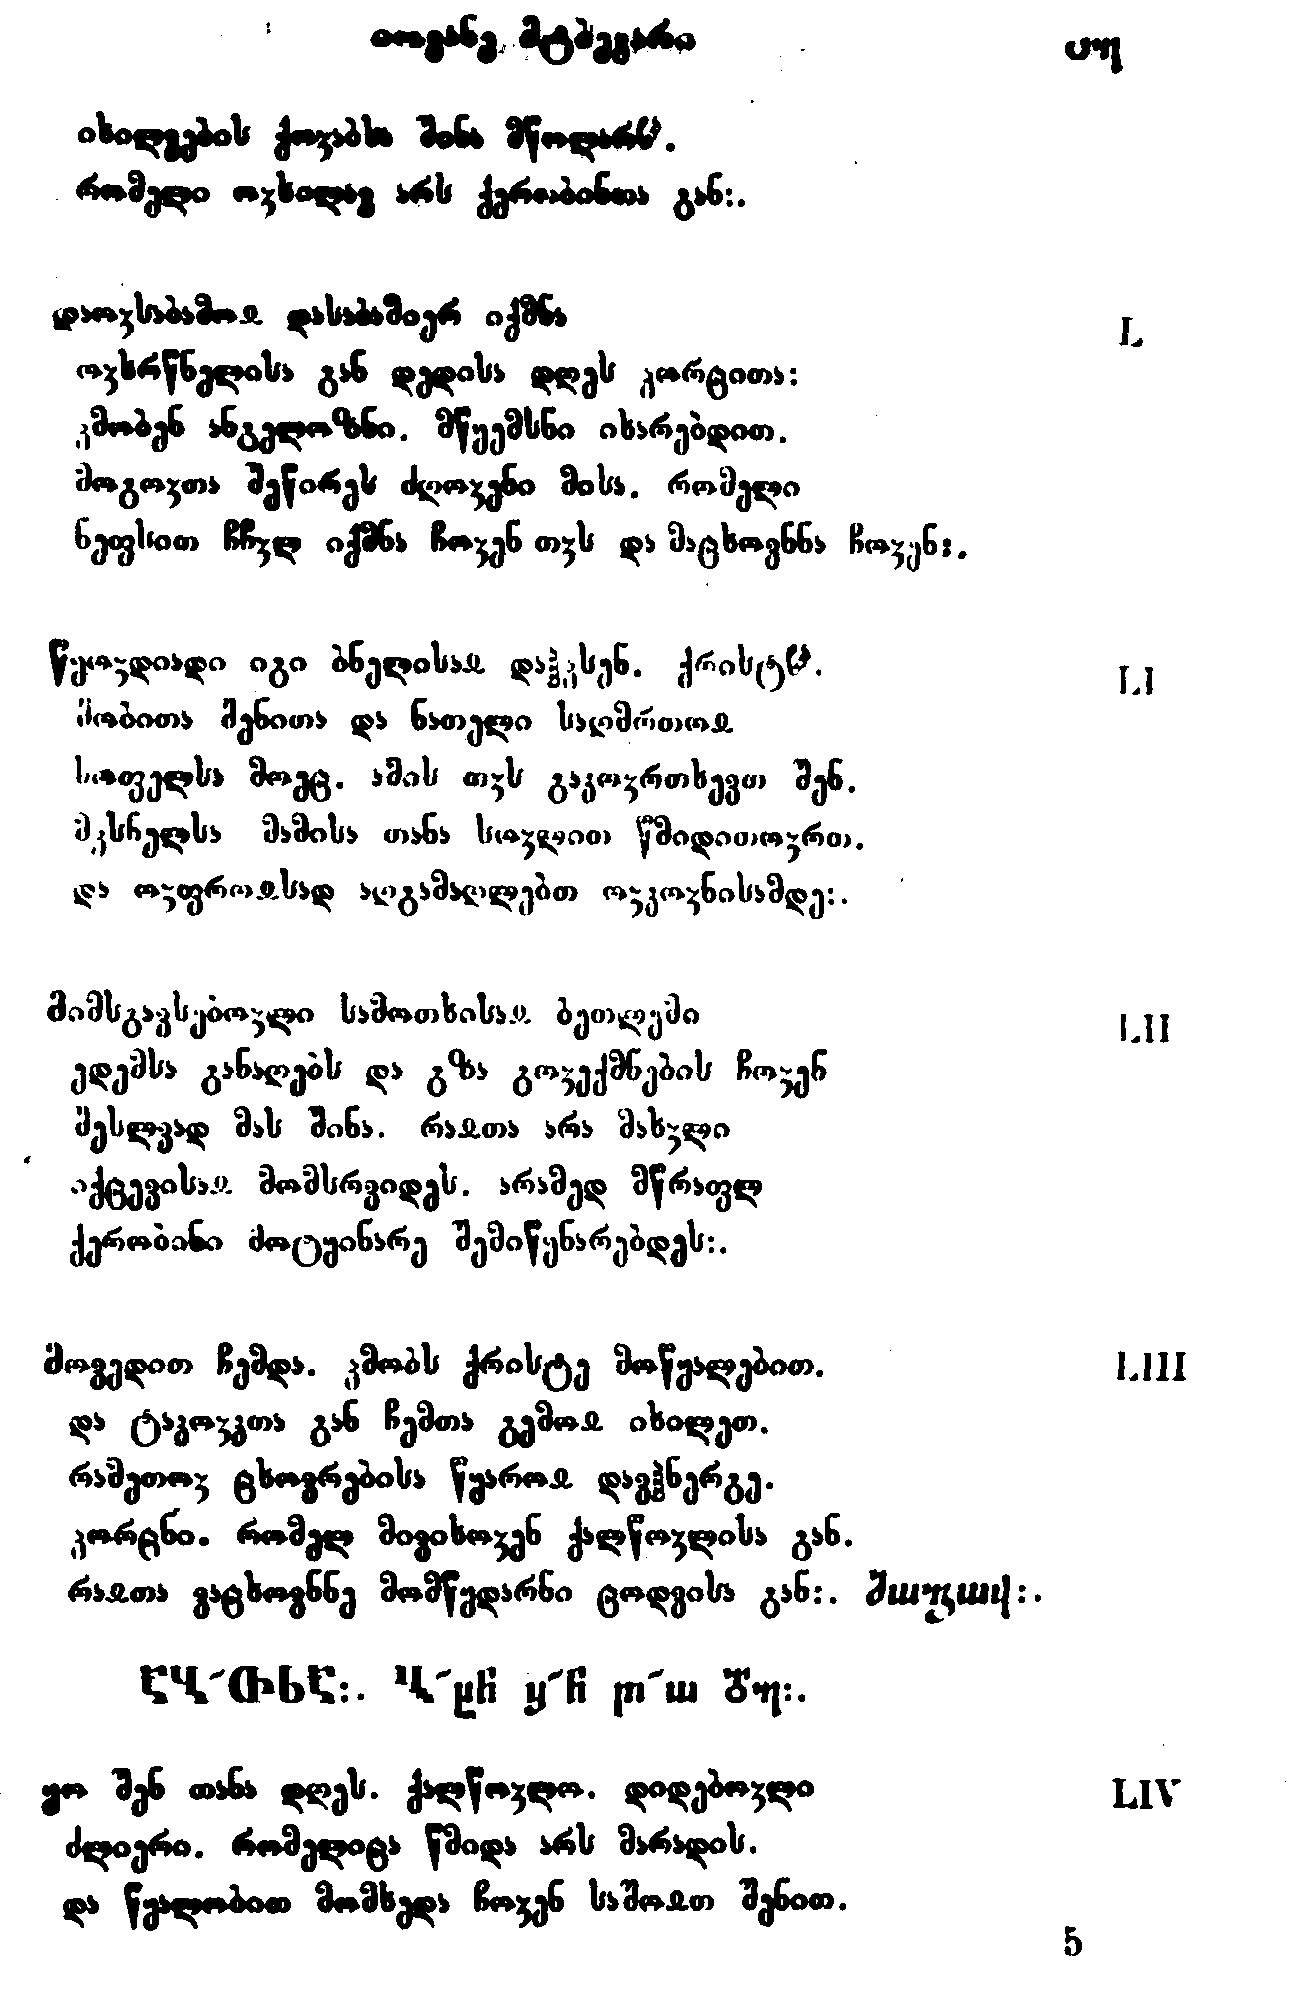 იოვანე მტბევარი
იხილვების ქოჳაბსა შინა მწოლარჱ.
რომელი ოჳხილავ არს ქერაბინთა გან:.
დაოჳსაბამოჲ დასაბამიერ იქმნა L
ოჳხრწნელისა გან დედისა დღეს ჴორცითა:
ჴმობენ ანგელოზნი. მწყემსნი იხარებდით.
მოგოჳთა შეწირეს ძღოჳენი მისა. რომელი
ნეფსით ჩჩჳლ იქმნა ჩოჳენ თჳს და მაცხოვნნა ჩოჳენ:.
წყოჳდიადი იგი ბნელისაჲ დაჰჴსენ. ქრისტჱ. LI
შობითა შენითა და ნათელი საღმრთოჲ
სოფელსა მოეც. ამის თჳს გაკოჳრთხევთ შენ.
მჴსნელსა მამისა თანა სოჳლით წმიდითოჳრთ.
და ოჳფროჲსად აღგამაღლებთ ოჳკოჳნისამდე:.
მიმსგავსებოჳლი სამოთხისაჲ ბეთლემი LII
ედემსა განაღებს და გზა გოჳექმნების ჩოჳენ
შესლვად მას შინა. რაჲთა არა მახჳლი
იქცევისაჲ მომსრვიდეს. არამედ მწრაფლ
ქერობინი მოტყინარე შემიწყნარებდეს:.
მოვედით ჩემდა. ჴმობს ქრისტე მოწყალებით. LIII
და ტაკოჳკთა გან ჩემთა გემოჲ იხილეთ.
რამეთოჳ ცხოვრებისა წყაროჲ დავჰნერგე.
ჴორცნი. რომელ მივიხოჳენ ქალწოჳლისა გან.
რაჲთა ვაცხოვნნე მომწყდარნი ცოდვისა გან:.
ყო შენ თანა დღეს. ქალწოჳლო. დიდებოჳლი LIV
ძლიერი. რომელიცა წმიდა არს მარადის.
და წყალობით მომხედა ჩოჳენ საშოჲთ შენით.
5